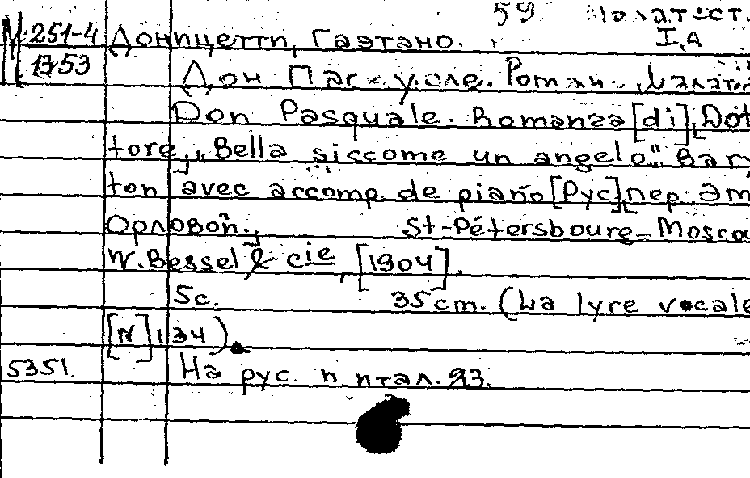 59 Малатест.
М 251-4 Доницетти, Гаэтано. I, А
1353 Дон Паскуале. Романс Малате
Don Pasquale. Romanza [di] Dot
tore, „Bella siccome un angelo". Bary
ton avec accomp. de piano [Рус] пер. Эм
Орловой. St-Pétersbourg-Mosco
W. Bessel & cie, [1904].
5с. 35cm. (La lyre vocale
[N] 134).
5351. На рус. и итал. яз.